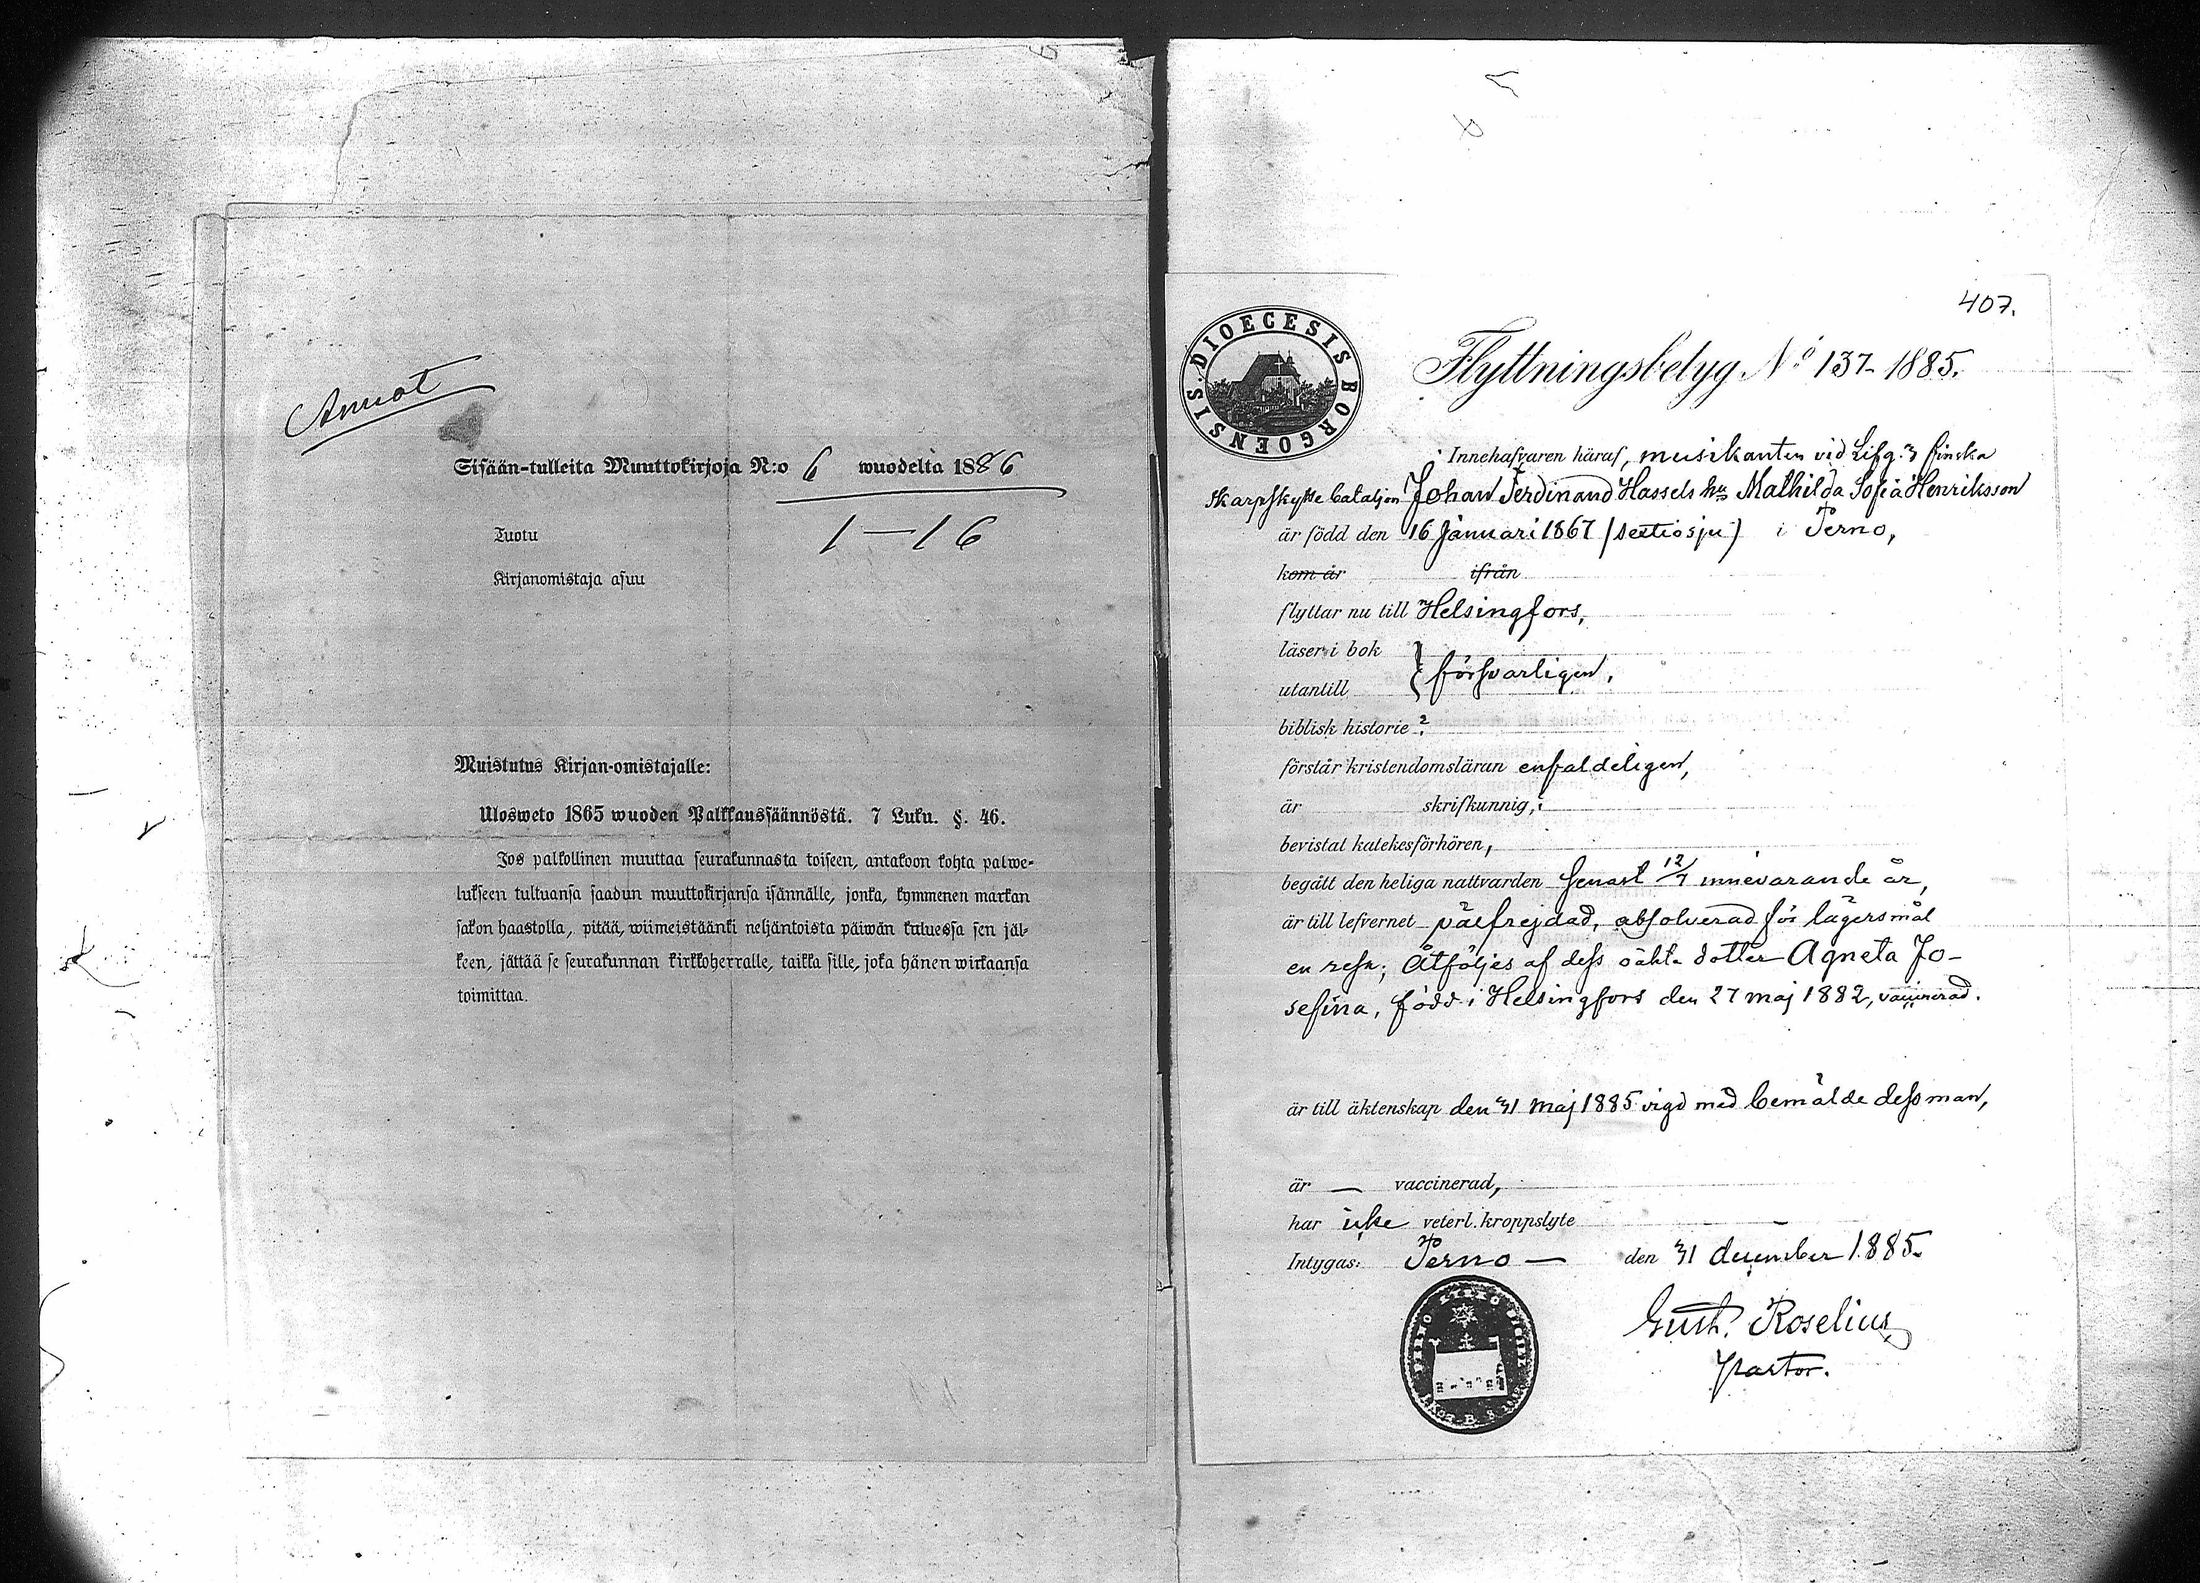 Annot
Sisään-tulleita Muuttokirjoja N:o 6 wuodelta 1886
1—16
Tuotu
Kirjanomistaja asuu
Muistutus Kirjan-omistajalle:
Ulosweto 1865 wuoden Palkkaussäännöstä. 7 Luku. §. 46.
Jos palkollinen muuttaa seurakunnasta toiseen, antakoon kohta palwe-
lukseen tultuansa saadun muuttokirjansa isännälle, jonka, kymmenen markan
sakon haastolla, pitää, wiimeistäänki neljäntoista päiwän kuluessa sen jäl-
keen, jättää se seurakunnan kirkkoherralle, taikka sille, joka hänen wirkaansa
toimittaa.
407.
DIOECESIS BORGOENSIS.
Flyttningsbetyg No 137-1885.
Innehafvaren häraf, musikanten vid Lifg. 3 finska
Skarpskytte bataljon Johan Ferdinand Hassels hu Mathilda Sofia Henriksson
är född den 16 Januari 1867 (sextiosju) i Perno,
kom år ifrån
flyttar nu till Helsingfors,
läser i bok
} försvarligen,
utantill
biblisk historie ?
förstår kristendomsläran enfaldeligen,
är skrifkunnig,
bevistat katekesförhören,
begått den heliga nattvarden senast 12/7 innevarande år,
är till lefvernet välfrejdad, absolverad för lägersmål
en resa; Åtföljes af dess oäkta dotter Agneta Jo-
sefina, född i Helsingfors den 27 maj 1882, vaccinerad.
är till äktenskap den 31 maj 1885 vigd med bemälde dess man,
är — vaccinerad,
har icke veterl. kroppslyte
Intygas: Perno — den 31 december 1885.
Gust. Roselius
pastor.
PERNO KYRKO SIGILL